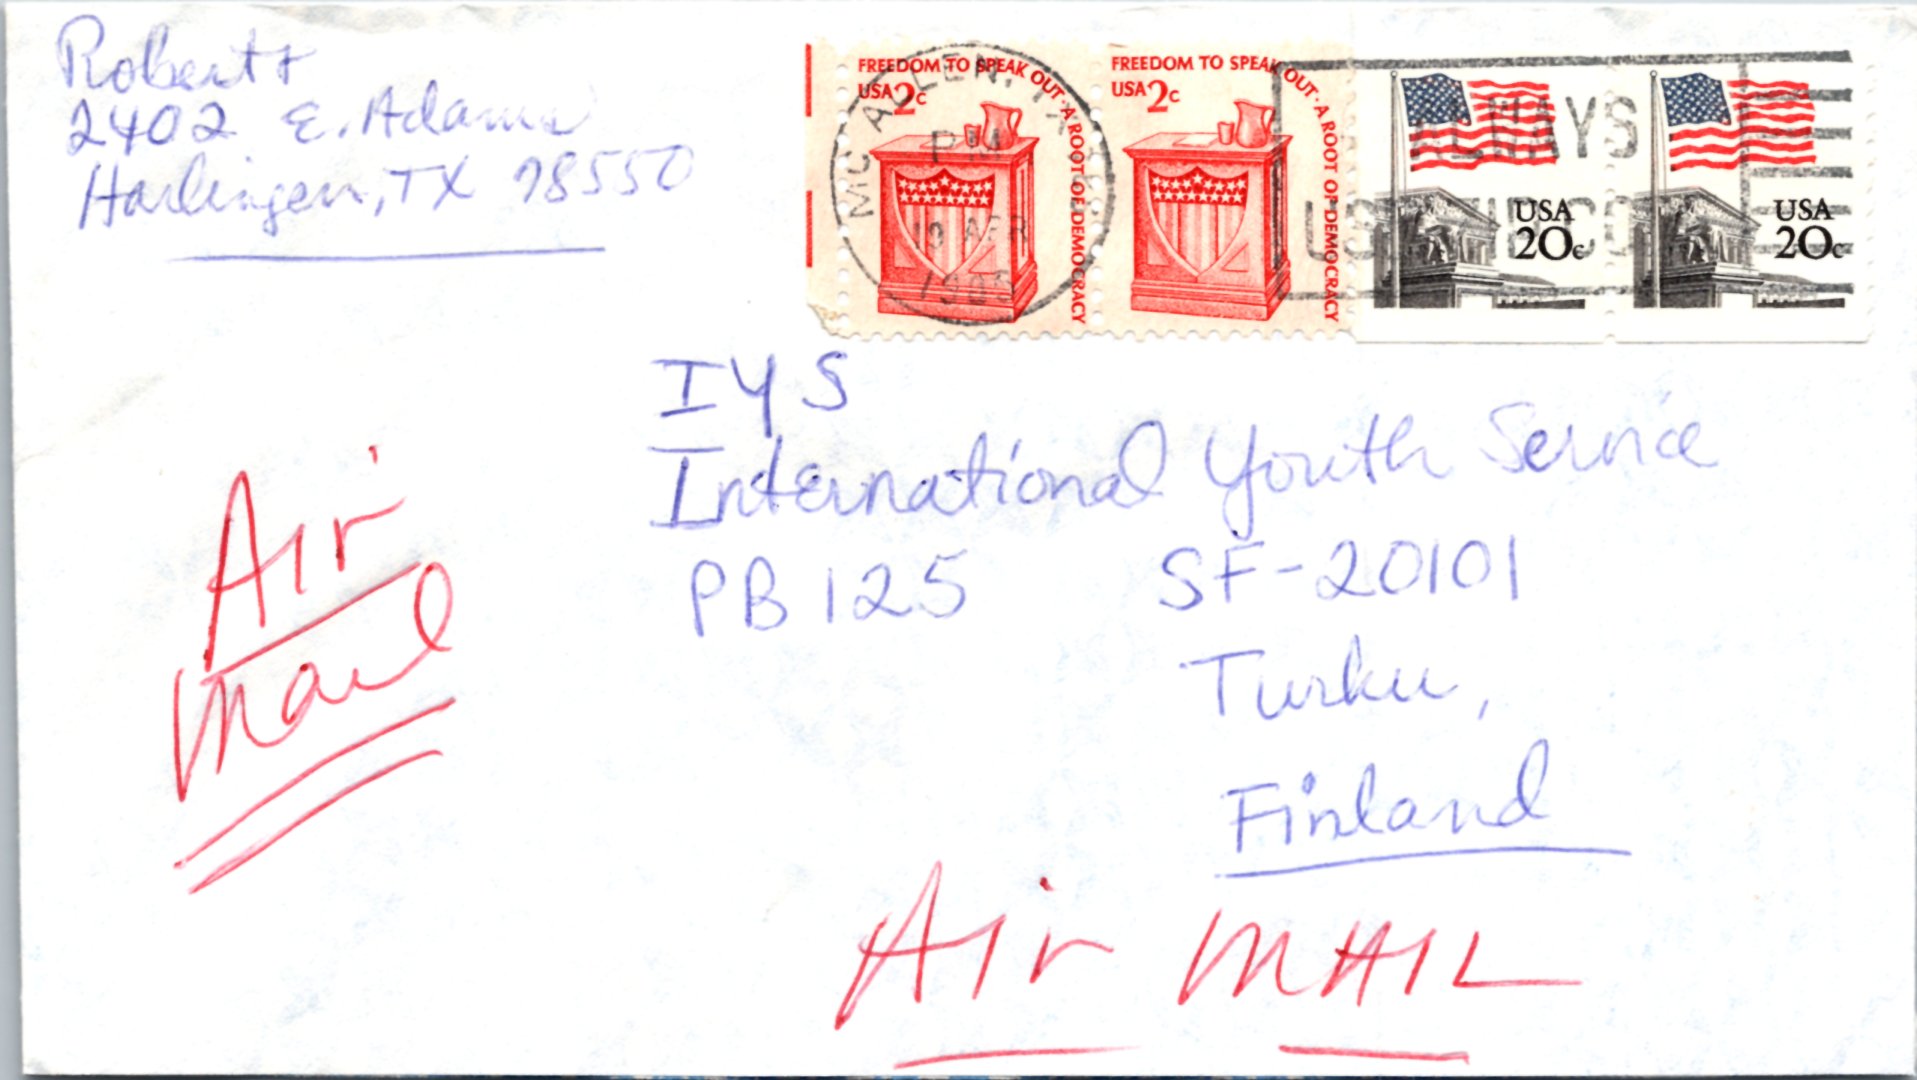 Robert
2402 E. Adams
Harlingen, TX 78550
FREEDOM TO SPEAK OUT · A ROOT OF DEMOCRACY
USA 2c
FREEDOM TO SPEAK OUT · A ROOT OF DEMOCRACY
USA 2c
MC ALLEN, TX
PM
19 APR
1985
ALWAYS
USE ZIP CODE
USA
20c
USA
20c
IYS
International Youth Service
PB 125 SF-20101
Turku,
Finland
Air
Mail
Air MAIL